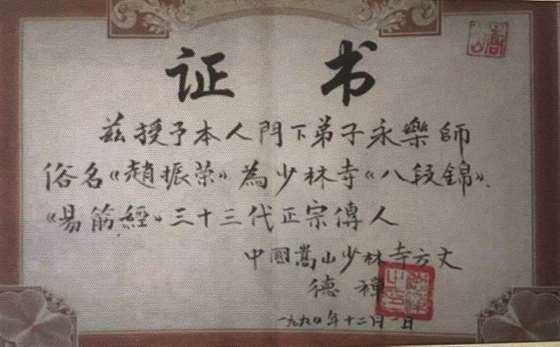 证书
兹授予本人門下弟子永樂師
俗名《趙振荣》為少林寺《八段錦》、
《易筋經》三十三代正宗傳人
中國嵩山少林寺方丈
德禅
一九九〇年十二月一日